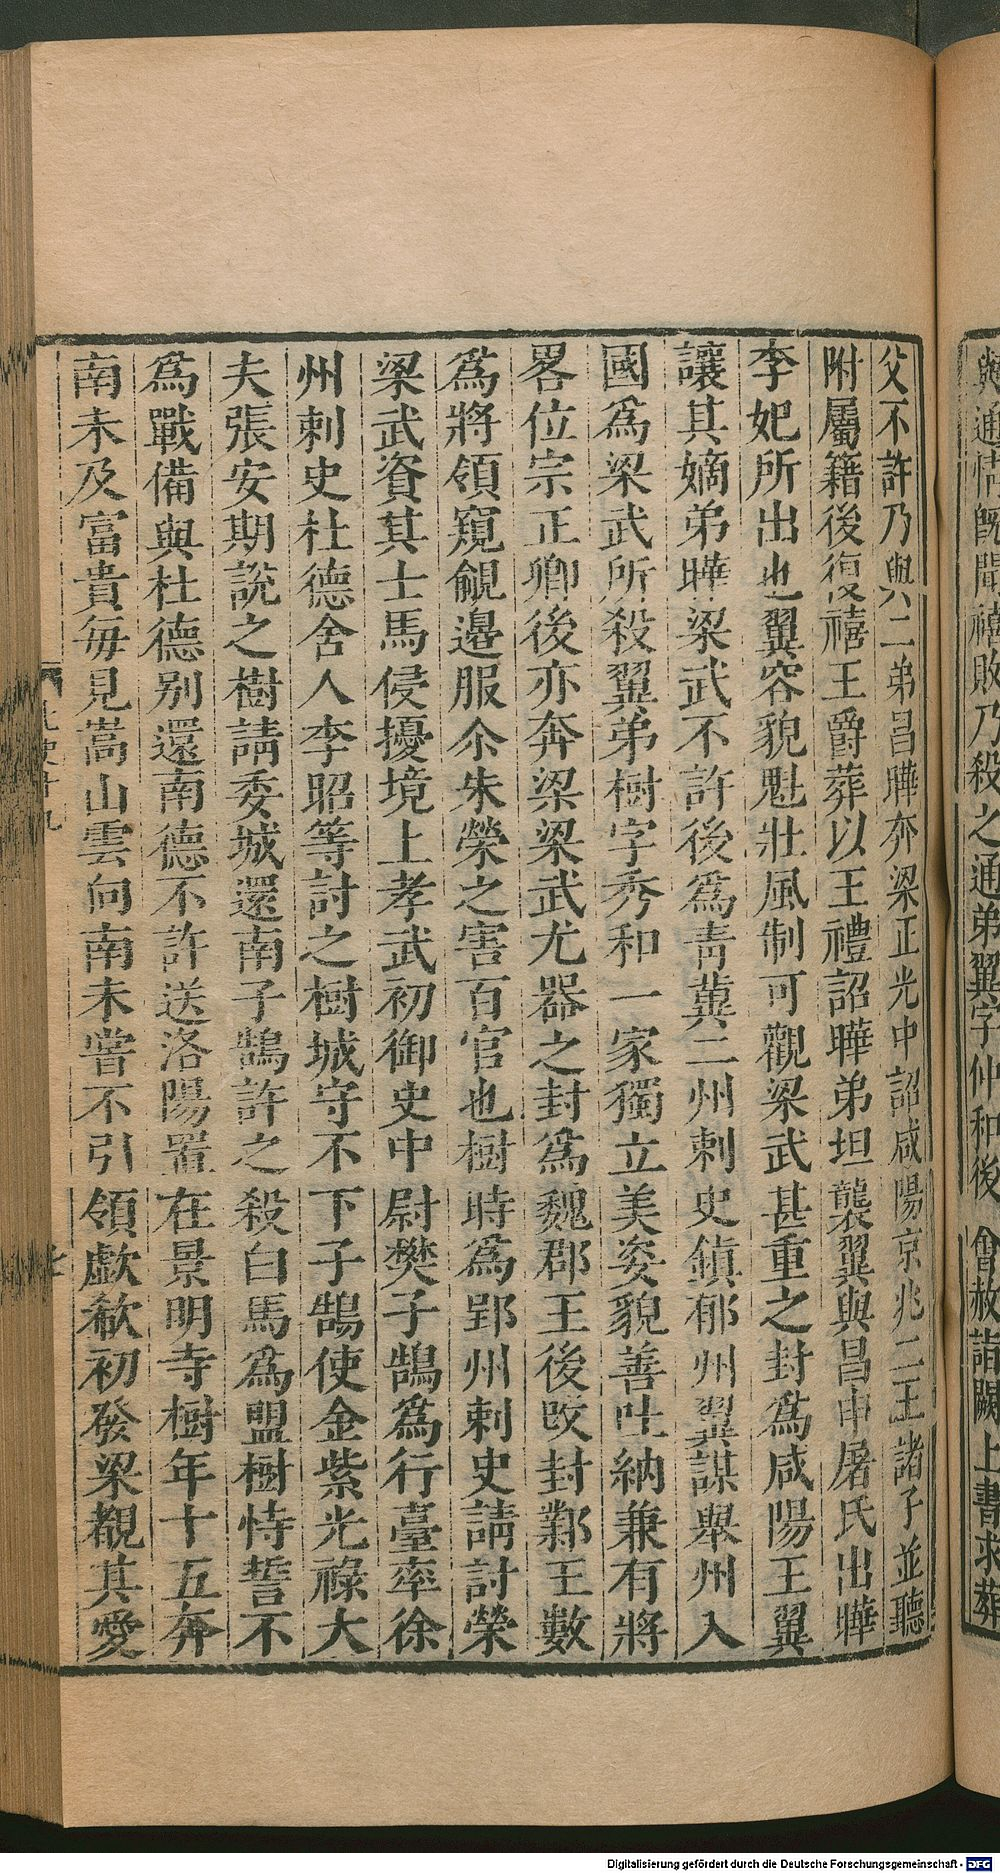 與通情旣聞禧敗乃殺之通弟翼字仲和後會赦詣闕上書求葬
父不許乃與二弟昌曄奔梁正光中詔咸陽京兆二王諸子並聽
附屬籍後復禧王爵葬以王禮詔曄弟坦襲翼與昌申屠氏出曄
李妃所出也翼容貌魁壯風制可觀梁武甚重之封爲咸陽王翼
讓其嫡弟曄梁武不許後爲青冀二州刺史鎮郁州翼謀舉州入
國爲梁武所殺翼弟樹字秀和一家獨立美姿貌善吐納兼有將
畧位宗正卿後亦奔梁梁武尤器之封爲魏郡王後改封鄴王數
爲將領窺覦邉服尒朱榮之害百官也樹時爲郢州刺史請討榮
梁武資其士馬侵擾境上孝武初御史中尉樊子鵠爲行臺率徐
州刺史杜德舍人李昭等討之樹城守不下子鵠使金紫光祿大
夫張安期說之樹請委城還南子鵠許之殺白馬爲盟樹恃誓不
爲戰備與杜德别還南德不許送洛陽置在景明寺樹年十五奔
南未及富貴每見嵩山雲向南未嘗不引領歔欷初發梁覩其愛
Digitalisierung gefördert durch die Deutsche Forschungsgemeinschaft - DFG